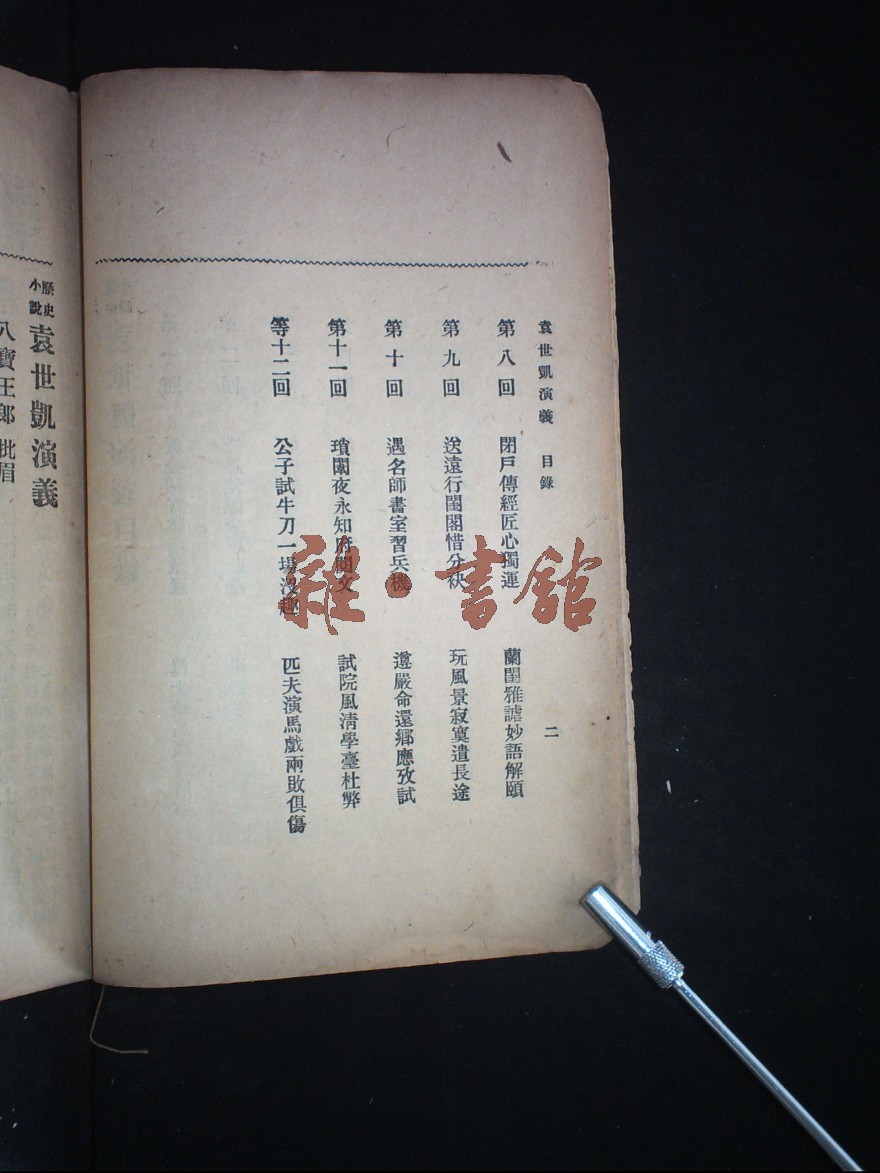 袁世凱演義 目錄 二
第八回 閉戶傳經匠心獨運 蘭閨雅謔妙語解頤
第九回 送遠行閨閣惜分袂 玩風景寂寞遣長途
第十回 遇名師書室習兵機 遵嚴命還鄉應攷試
第十一回 瑣闈夜永知府閱文 試院風清學臺杜弊
等十二回 公子試牛刀一場沒趣 匹夫演馬戲兩敗俱傷
歷史小說 袁世凱演義
八寶王郎 批眉
雜·書館